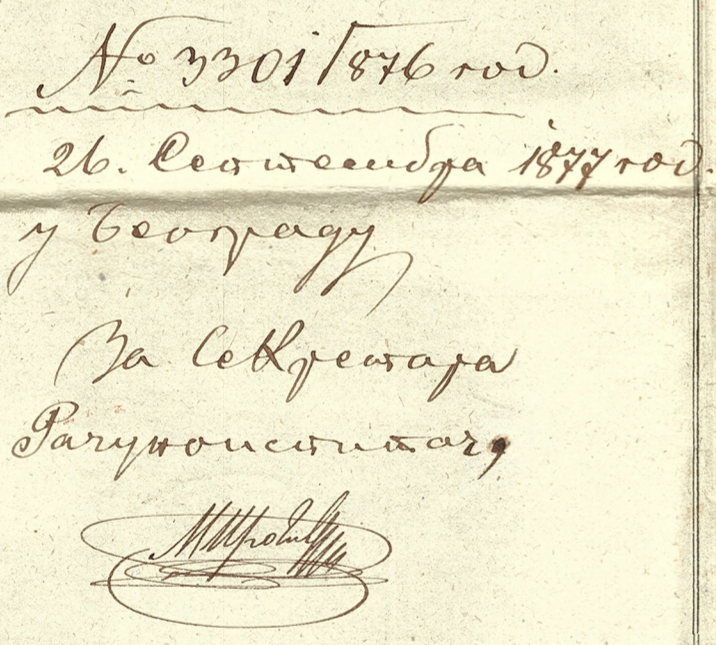 № 3301/876 год.
26. Септембра 1877 год.
у Београду
За Секретара
Рачуноиспитач,